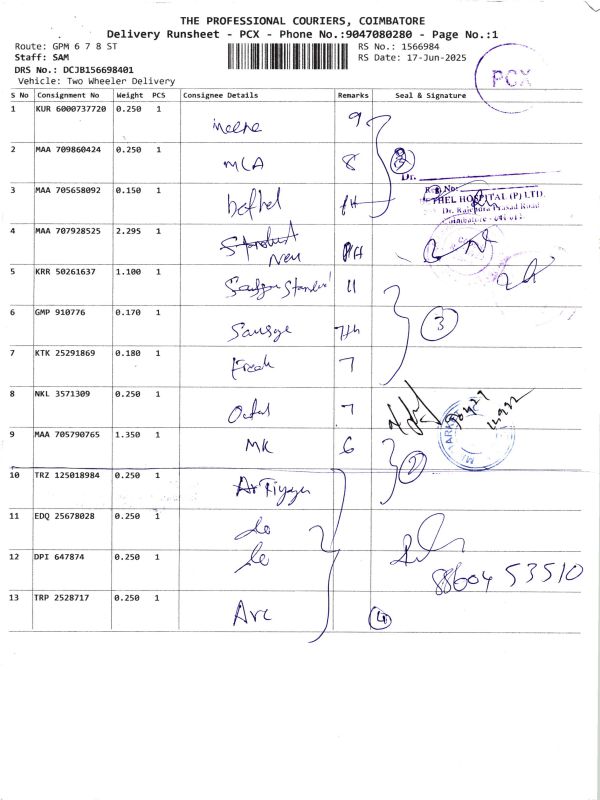 THE PROFESSIONAL COURIERS, COIMBATORE
Delivery Runsheet - PCX - Phone No.:9047080280 - Page No.:1
Route: GPM 6 7 8 ST
RS No.: 1566984
Staff: SAM
RS Date: 17-Jun-2025
DRS No.: DCJB156698401
Vehicle: Two Wheeler Delivery
PCX
S No Consignment No Weight PCS Consignee Details Remarks Seal & Signature
1 KUR 6000737720 0.250 1 9
2 MAA 709860424 0.250 1 MCA 8
Dr.
3 MAA 705658092 0.150 1 bethel
Reg No:
THEL HOSPITAL (P) LTD.
Dr. Rajendra Prasad Road
4 MAA 707928525 2.295 1 Stardust
5 KRR 50261637 1.100 1 Standard 11
6 GMP 910776 0.170 1 Sausge 7th 3
7 KTK 25291869 0.180 1 Fresh 7
8 NKL 3571309 0.250 1 7
9 MAA 705790765 1.350 1 MK 6 2
10 TRZ 125018984 0.250 1
11 EDQ 25678028 0.250 1 do
12 DPI 647874 0.250 1
88604 53510
13 TRP 2528717 0.250 1 Arc 4